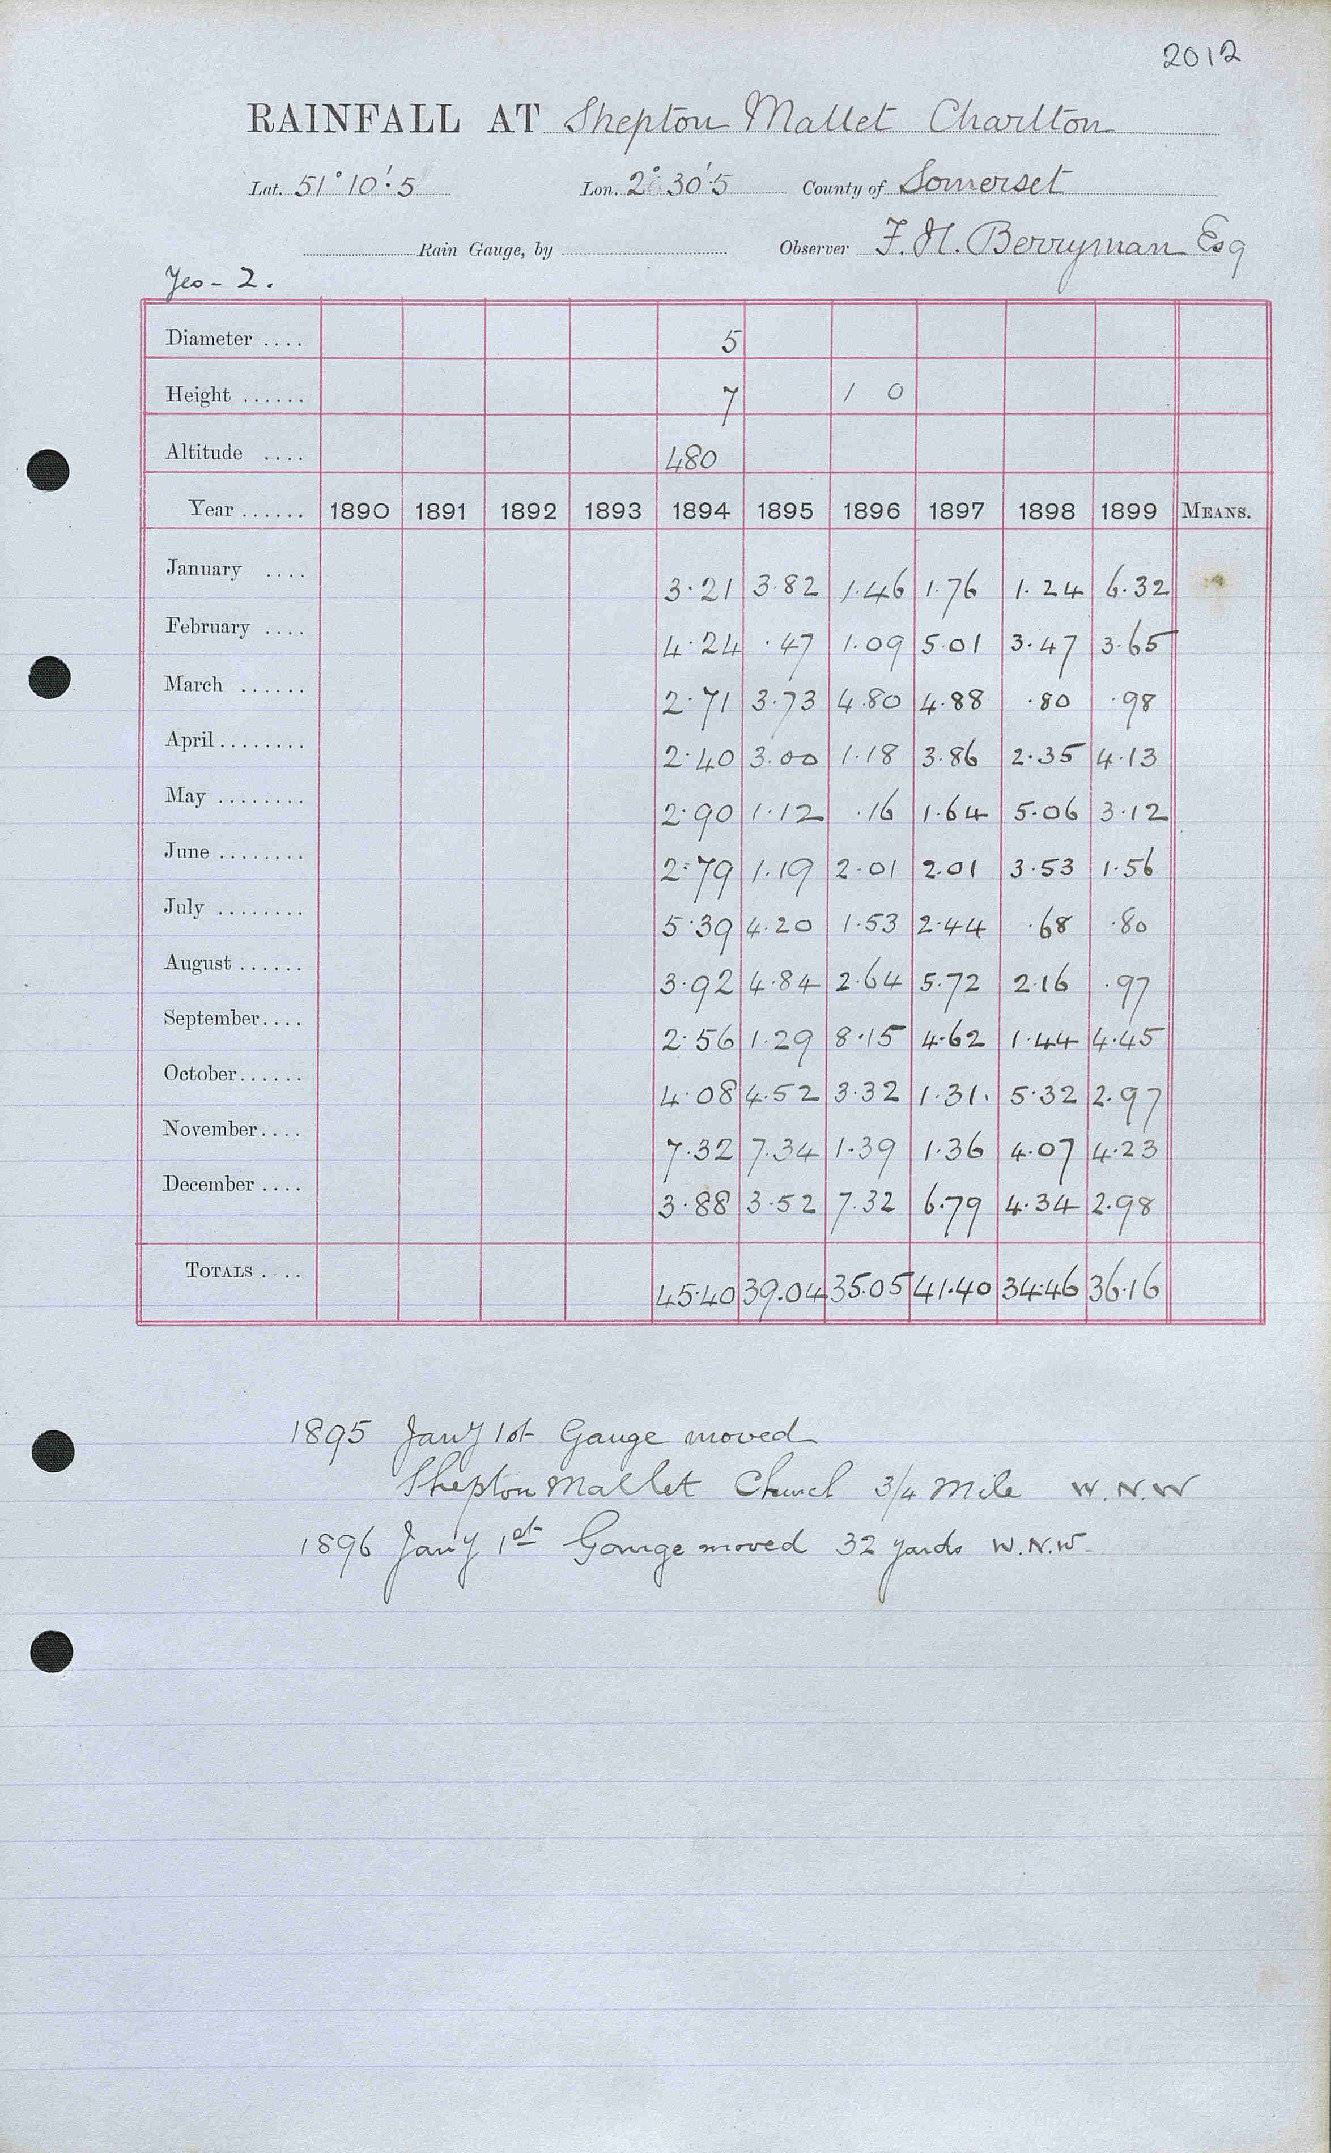 2012
RAINFALL AT Shepton Mallet Charlton
Lat. 51° 10'.5 Lon. 2° 30'.5 County of Somerset
Rain Gauge, by Observer F. H. Berryman Esq
Yeo - 2.
Diameter .... 5
Height ...... 7 1 0
Altitude .... 480
Year ...... 1890 1891 1892 1893 1894 1895 1896 1897 1898 1899 MEANS.
January .... 3.21 3.82 1.46 1.76 1.24 6.32
February .... 4.24 .47 1.09 5.01 3.47 3.65
March ...... 2.71 3.73 4.80 4.88 .80 .98
April ........ 2.40 3.00 1.18 3.86 2.35 4.13
May ........ 2.90 1.12 .16 1.64 5.06 3.12
June ........ 2.79 1.19 2.01 2.01 3.53 1.56
July ........ 5.39 4.20 1.53 2.44 .68 .80
August ...... 3.92 4.84 2.64 5.72 2.16 .97
September.... 2.56 1.29 8.15 4.62 1.44 4.45
October...... 4.08 4.52 3.32 1.31. 5.32 2.97
November.... 7.32 7.34 1.39 1.36 4.07 4.23
December .... 3.88 3.52 7.32 6.79 4.34 2.98
TOTALS .... 45.40 39.04 35.05 41.40 34.46 36.16
1895 Jany 1st Gauge moved
Shepton Mallet Church 3/4 Mile W.N.W
1896 Jany 1st Gauge moved 32 yards W.N.W.